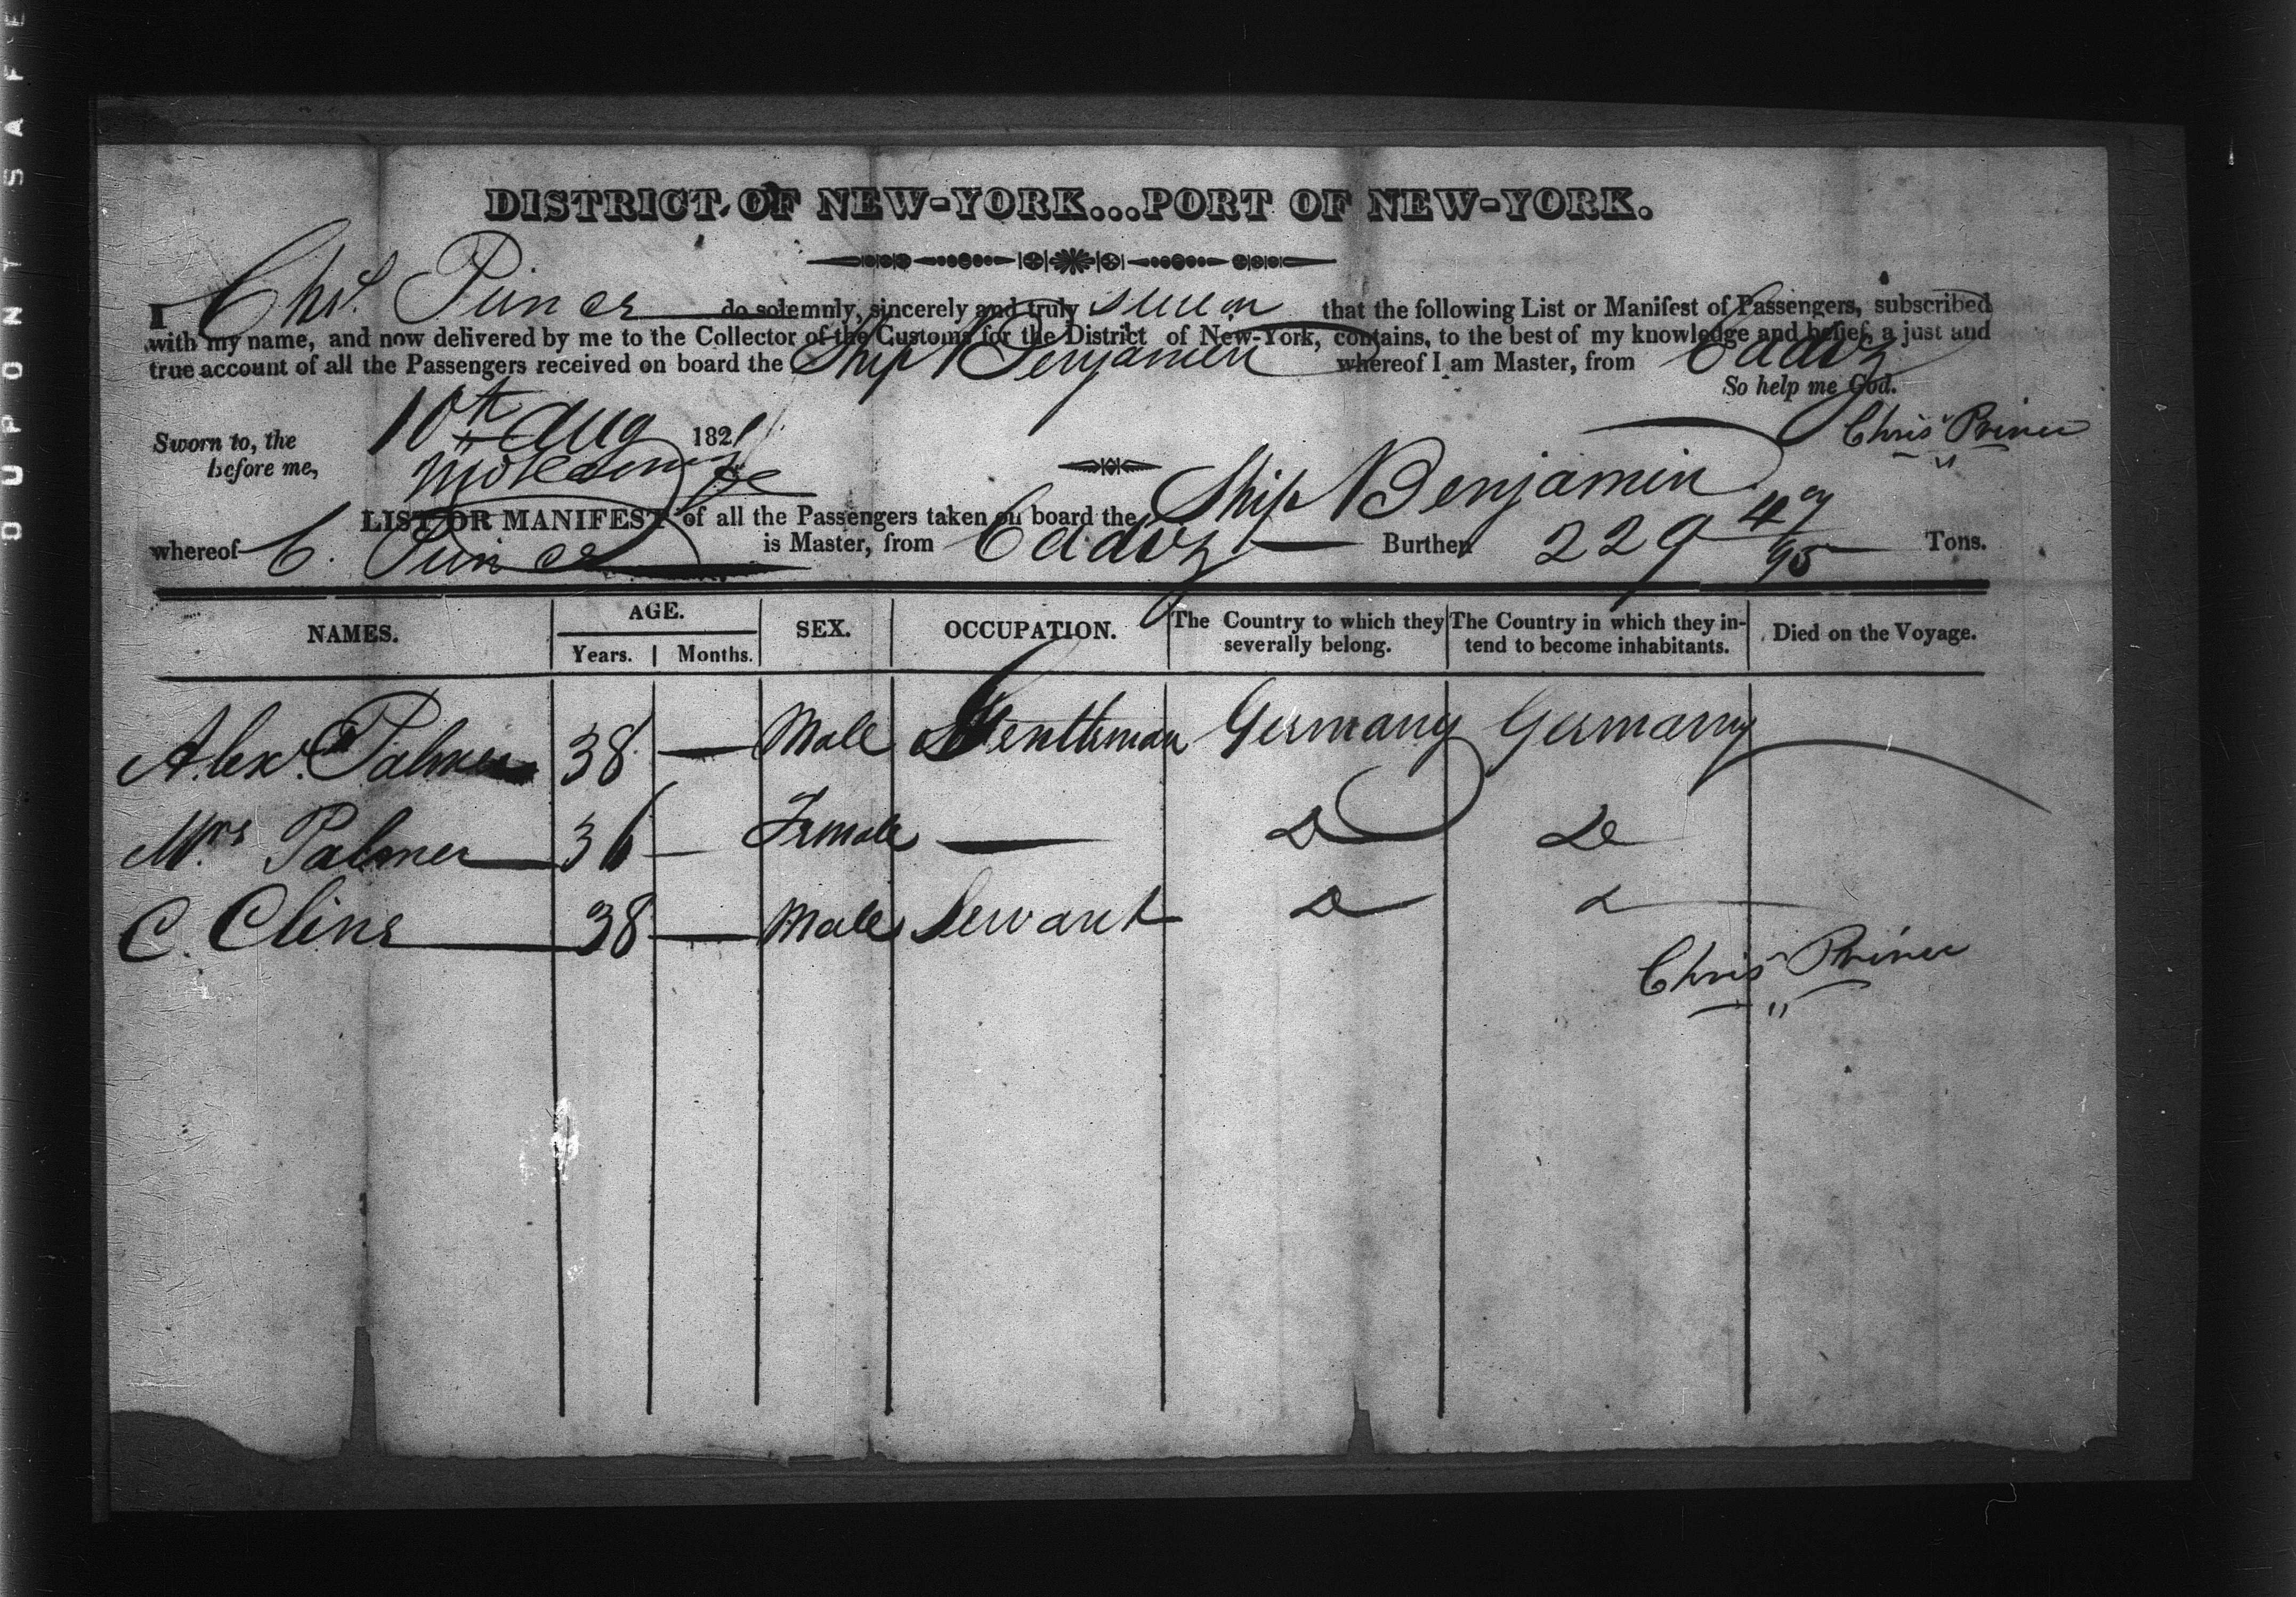 DUPONT SAFE
DISTRICT OF NEW-YORK...PORT OF NEW-YORK.
I Chrs. Prince do solemnly, sincerely and truly swear that the following List or Manifest of Passengers, subscribed
with my name, and now delivered by me to the Collector of the Customs for the District of New-York, contains, to the best of my knowledge and belief, a just and
true account of all the Passengers received on board the Ship Benjamin whereof I am Master, from Cadiz
So help me God.
Sworn to, the 10th Aug 1821
Chris Prince
before me,
LIST OR MANIFEST of all the Passengers taken on board the Ship Benjamin
whereof C. Prince is Master, from Cadiz Burthen 229 49/95 Tons.
NAMES. AGE. SEX. OCCUPATION. The Country to which they severally belong. The Country in which they intend to become inhabitants. Died on the Voyage.
Years. Months.
Alexr. Palmer 38 — Male Gentleman Germany Germany
Mrs Palmer 36 — Female — Do Do
C. Cline 38 — Male Servant Do Do
Chris Prince